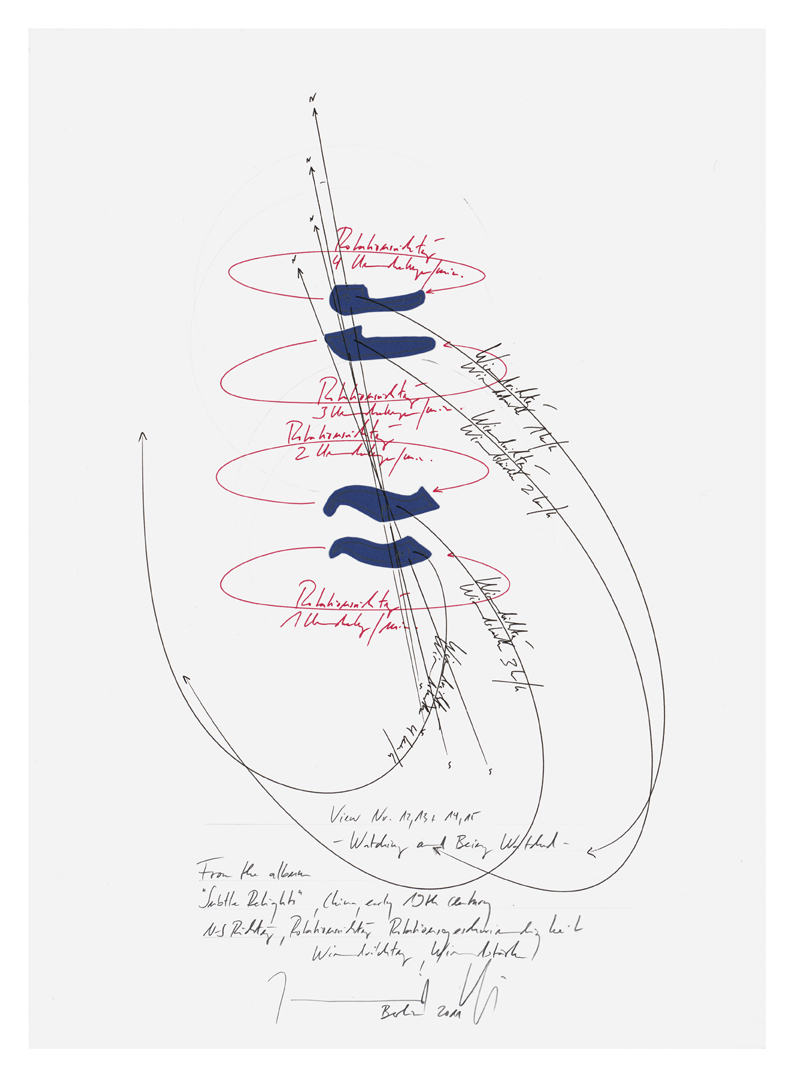 N
N
N
N
Rotationsrichtung
4 Umdrehungen/min.
Windrichtung
Windstärke 1 km/h
Rotationsrichtung
3 Umdrehungen/min.
Windrichtung
Windstärke 2 km/h
Rotationsrichtung
2 Umdrehungen/min.
Windrichtung
Windstärke 3 km/h
Rotationsrichtung
1 Umdrehung/min.
Windrichtung
Windstärke 4 km/h
S
S
S
View Nr. 12,13 + 14,15
- Watching and Being Watched -
From the album
"Subtle Delights", China, early 19th century
N-S Richtung, Rotationsrichtung, Rotationsgeschwindigkeit
Windrichtung, Windstärke
Berlin 2011